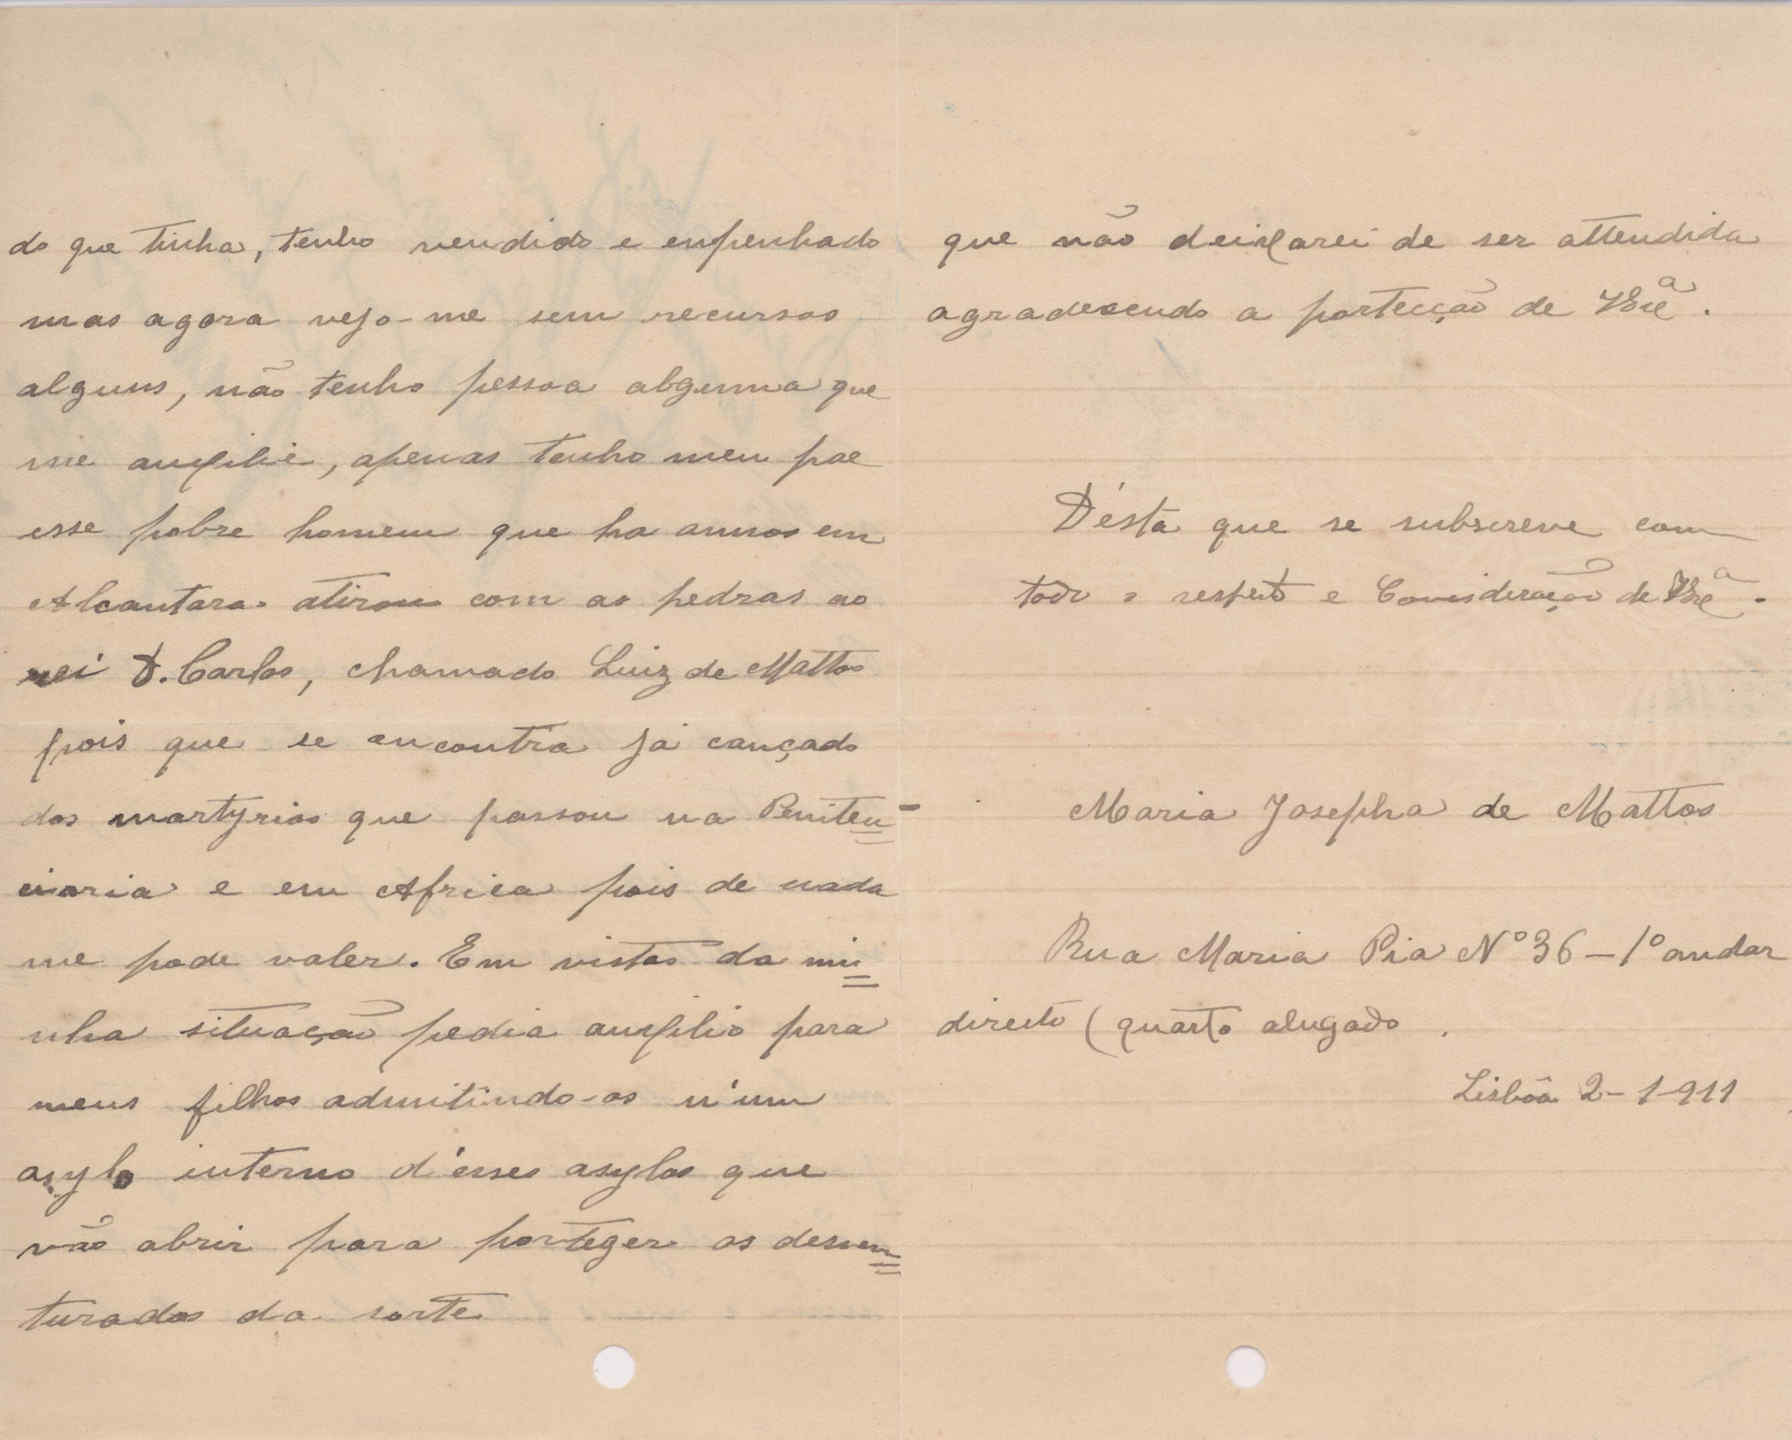 do que tinha, tenho vendido e enpenhado
mas agora vejo-me sem recursos
alguns, não tenho pessoa alguma que
me auxilie, apenas tenho meu pae
esse pobre homem que ha annos em
Alcantara atirou com as pedras ao
rei D. Carlos, chamado Luiz de Mattos
pois que se encontra já cançado
dos martyrios que passou na Peniten=
ciaria e em Africa pois de nada
me pode valer. Em vistas da mi=
nha situação pedia auxilio para
meus filhos admitindo-os n'um
asylo interno d'esses asylos que
vão abrir para porteger os desven=
turados da sorte
que não deixarei de ser attendida
agradecendo a portecção de V Exª.
D'ésta que se subscreve com
todo o respeito e Consideração de V Exª.
Maria Josepha de Mattos
Rua Maria Pia Nº 36 - 1º andar
direito (quarto alugado.
Lisbôa 2-1-911